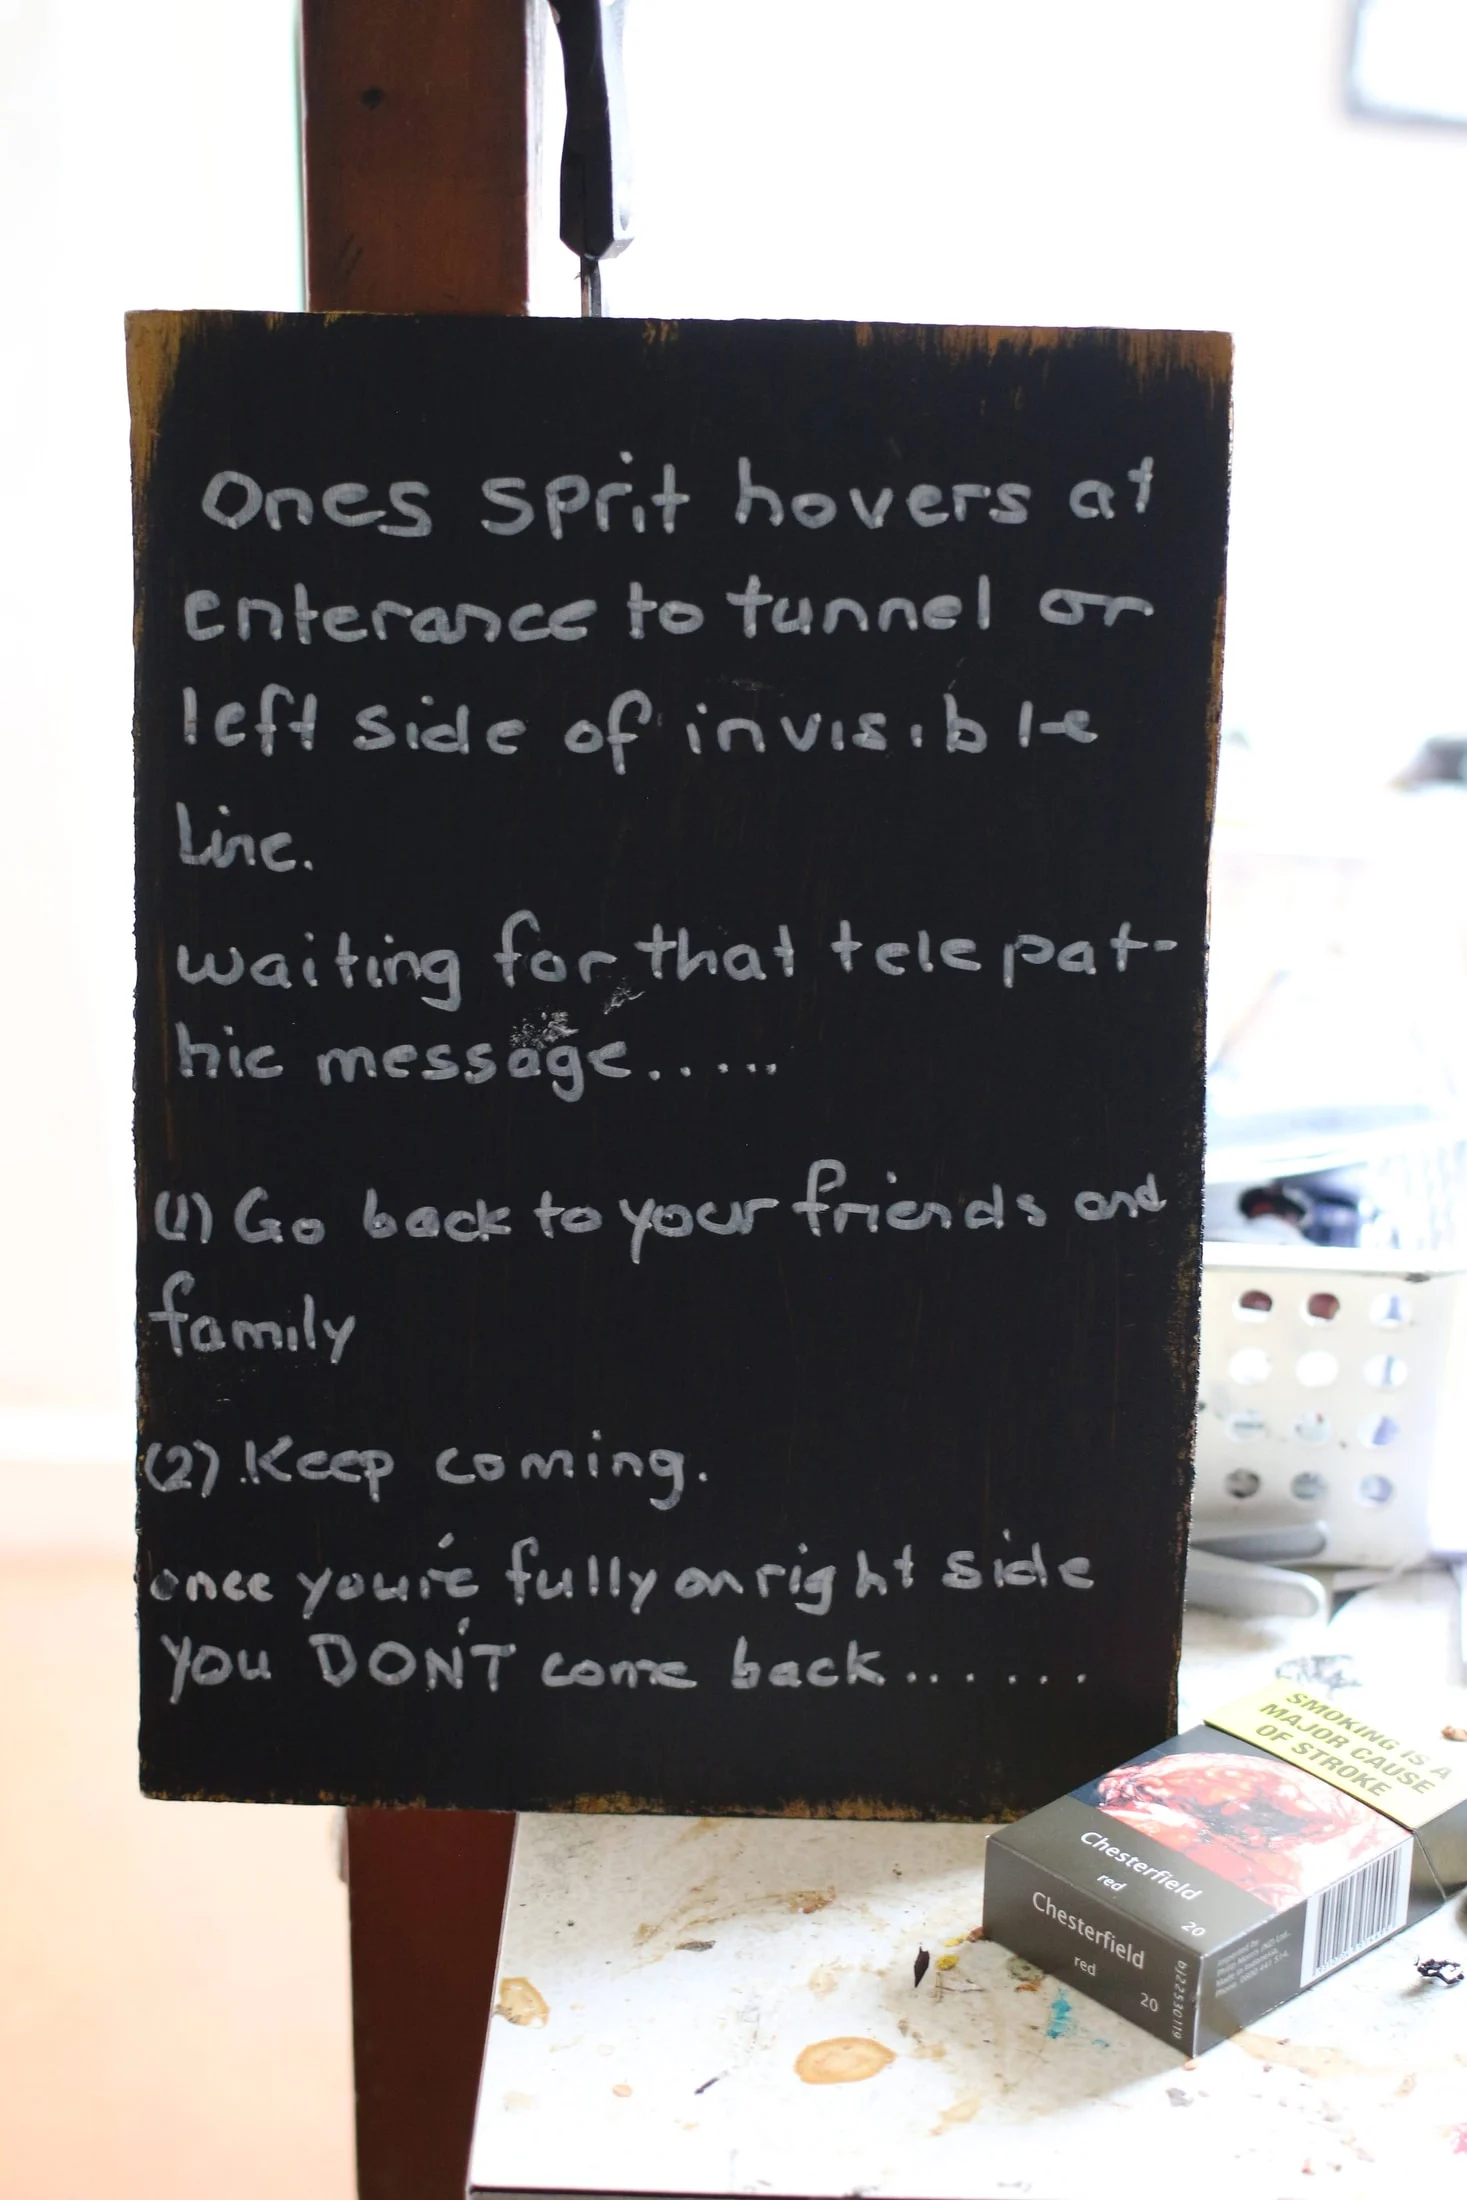 Ones sprit hovers at
enterance to tunnel or
left side of invisible
Line.
waiting for that telepat-
hic message.....
(1) Go back to your friends and
family
(2) Keep coming.
once you're fully on right side
you DON'T come back......
SMOKING IS A
MAJOR CAUSE
OF STROKE
Chesterfield
red
20
Chesterfield
red
20